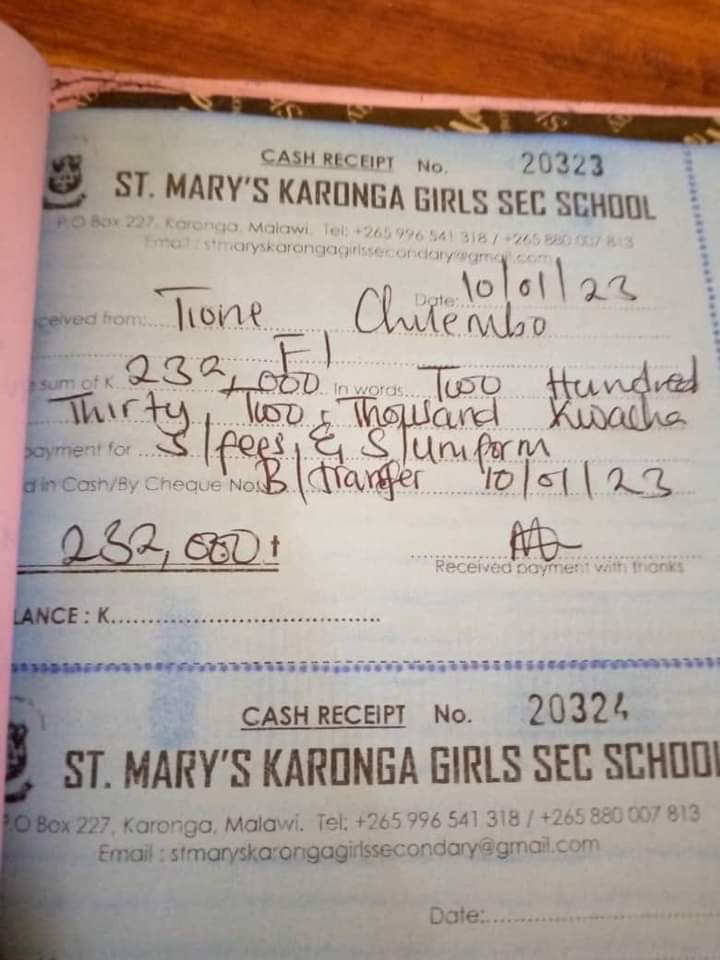 CASH RECEIPT No. 20323
ST. MARY'S KARONGA GIRLS SEC SCHOOL
P.O Box 227, Karonga, Malawi. Tel: +265 996 541 318 / +265 880 007 813
Email : stmaryskarongagirlssecondary@gmail.com
Date: 10/01/23
ceived from: Tione Chilembo
F1
sum of K 232,000 In words Two Hundred
Thirty Two Thousand Kwacha
payment for S/fees, & S/uniform
d in Cash/By Cheque Nos B/transfer 10/01/23
232,000t
Received payment with thanks
LANCE : K
CASH RECEIPT No. 20324
ST. MARY'S KARONGA GIRLS SEC SCHOOL
P.O Box 227, Karonga, Malawi. Tel: +265 996 541 318 / +265 880 007 813
Email : stmaryskarongagirlssecondary@gmail.com
Date: